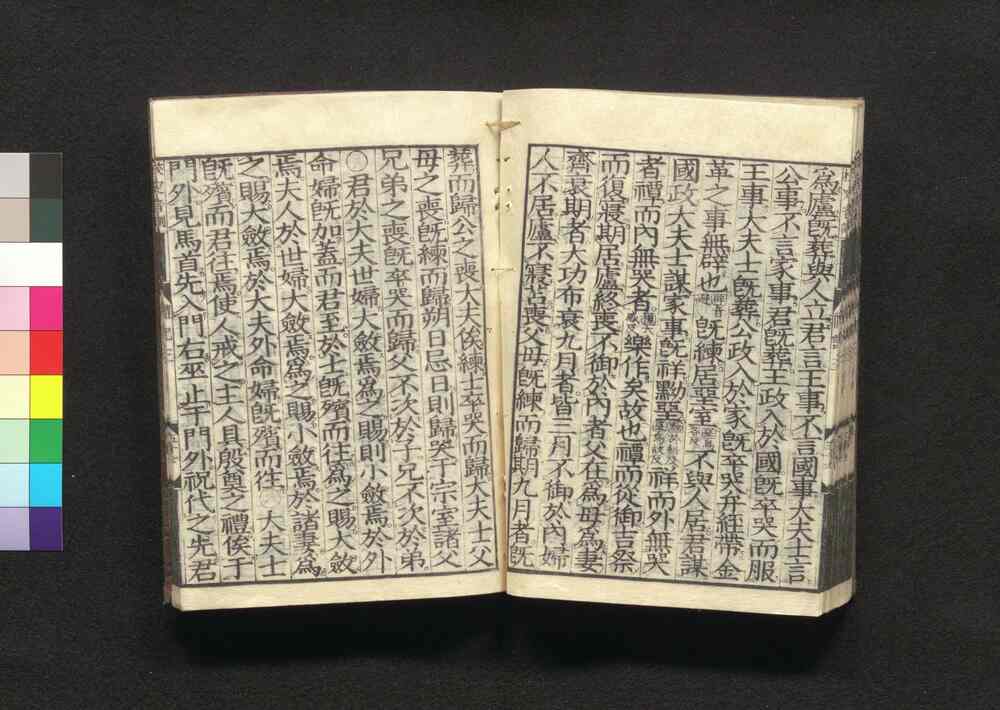 爲廬既葬與人立君言王事不言國事大夫士言
公事不言家事君既葬王政入於國既卒哭而服
王事大夫士既葬公政入於家既卒哭弁絰帶金
革之事無辟也既練居堊室不與人居君謀
國政大夫士謀家事既祥黝堊祥而外無哭
者禫而內無哭者樂作矣故也禫而從御吉祭
而復寢期居廬終喪不御於內者父在爲母爲妻
齊衰期者大功布衰九月者皆三月不御於內婦
人不居廬不寢苫喪父母既練而歸期九月者既
葬而歸公之喪大夫俟練士卒哭而歸大夫士父
母之喪既練而歸朔日忌日則歸哭于宗室諸父
兄弟之喪既卒哭而歸父不次於子兄不次於弟
○君於大夫世婦大斂焉爲之賜則小斂焉於外
命婦既加蓋而君至於士既殯而往爲之賜大斂
焉夫人於世婦大斂焉爲之賜小斂焉於諸妻爲
之賜大斂焉於大夫外命婦既殯而往○大夫士
既殯而君往焉使人戒之主人具殷奠之禮俟于
門外見馬首先入門右巫止于門外祝代之先君